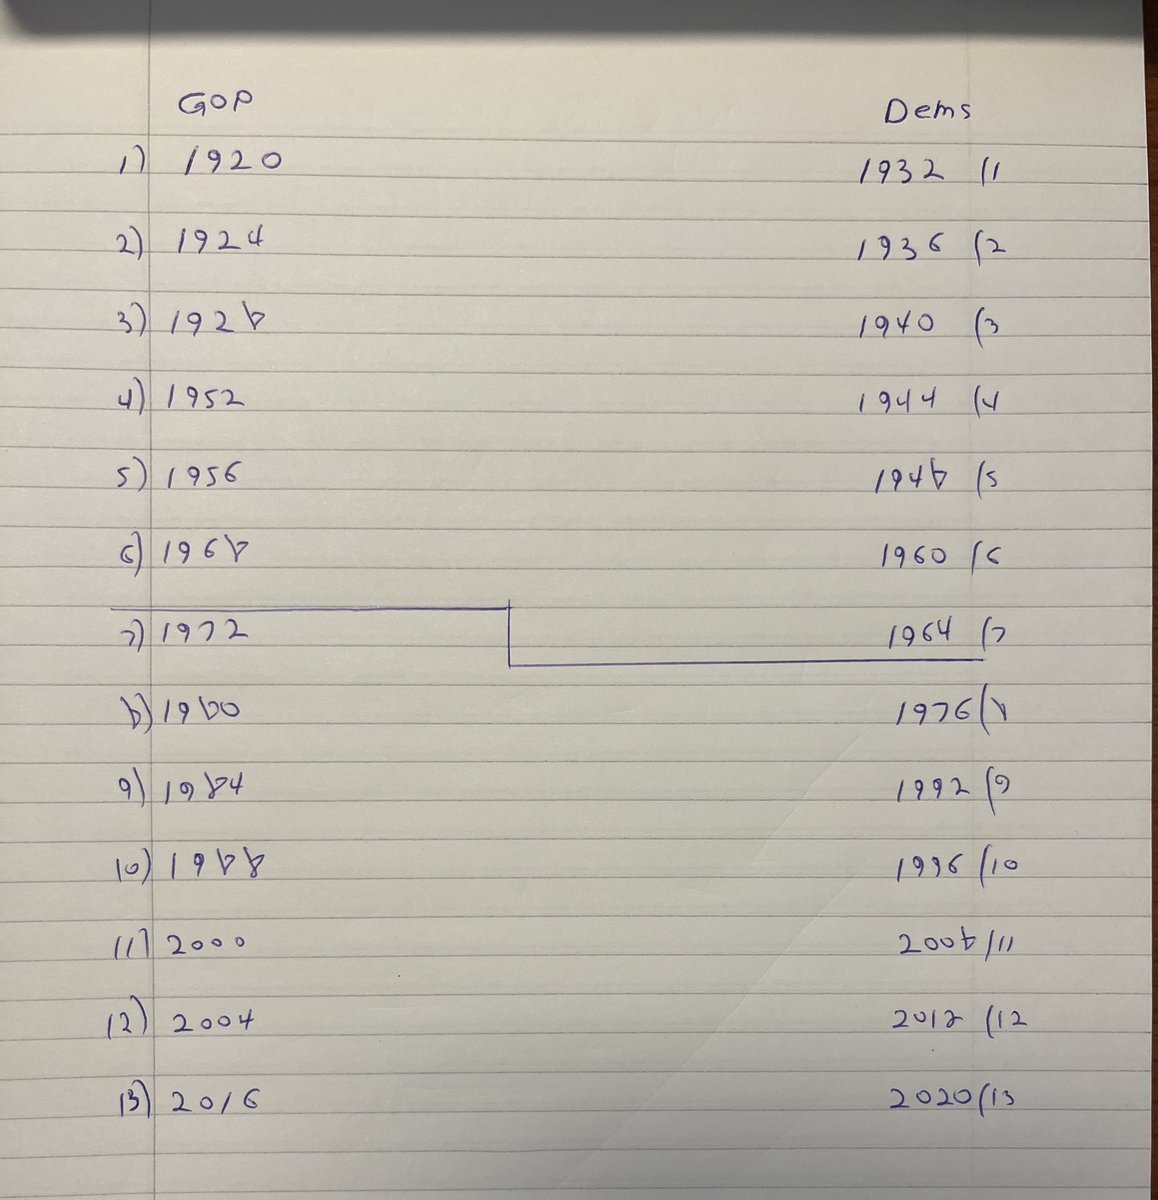 GOP Dems
1) 1920 1932 (1
2) 1924 1936 (2
3) 1928 1940 (3
4) 1952 1944 (4
5) 1956 1948 (5
6) 1968 1960 (6
7) 1972 1964 (7
8) 1980 1976 (8
9) 1984 1992 (9
10) 1988 1996 (10
11) 2000 2008 (11
12) 2004 2012 (12
13) 2016 2020 (13